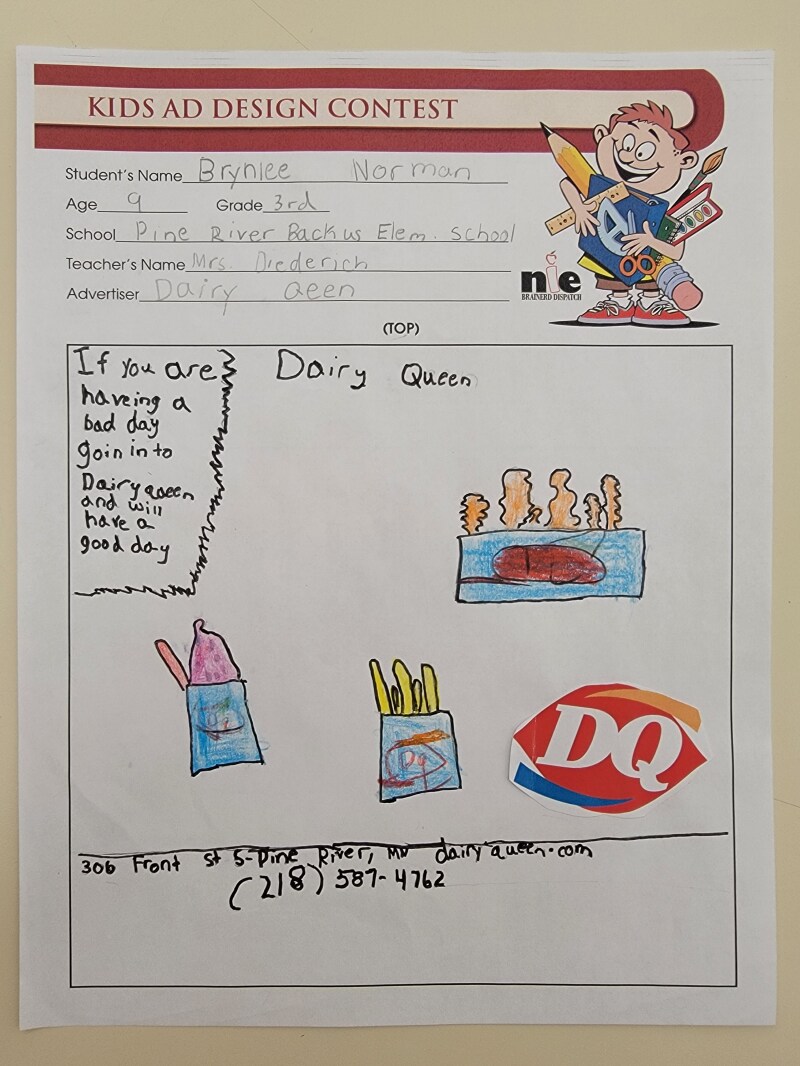 KIDS AD DESIGN CONTEST
Student's Name Brynlee Norman
Age 9 Grade 3rd
School Pine River Backus Elem. School
Teacher's Name Mrs. Diederich
Advertiser Dairy Qeen
nie
BRAINERD DISPATCH
(TOP)
If you are
haveing a
bad day
goin in to
Dairy queen
and will
have a
good day
Dairy Queen
DQ
DQ
306 Front St S-Pine River, MN dairyqueen.com
(218) 587-4762